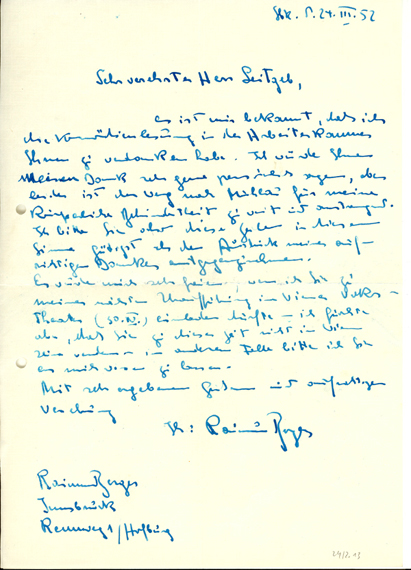 Ibk. 24. III. 52
Sehr verehrter Herr Leitgeb,
es ist mir bekannt, daß ich
die Komödienlesung in der Arbeiterkammer
Ihnen zu verdanken habe. Ich würde Ihnen
meinen Dank sehr gerne persönlich sagen, aber
leider ist der Weg nach Mühlau für meine
körperliche Behindertheit zu weit und anstrengend.
Ich bitte Sie aber diese Zeilen in diesem
Sinne gütigst als den Ausdruck meines auf-
richtigen Dankes entgegenzunehmen.
Es würde mich sehr freuen, wenn ich Sie zu
meiner nächsten Uraufführung im Wiener Volks-
Theater (30. ) einladen dürfte – ich fürchte
aber, daß Sie zu dieser Zeit nicht in Wien
sein werden – im anderen Falle bitte ich Sie
es mich wissen zu lassen.
Mit sehr ergebenen Grüßen und aufrichtiger
Verehrung
Ihr: Raimund Berger
Raimund Berger
Innsbruck
Rennweg 1/Hofburg